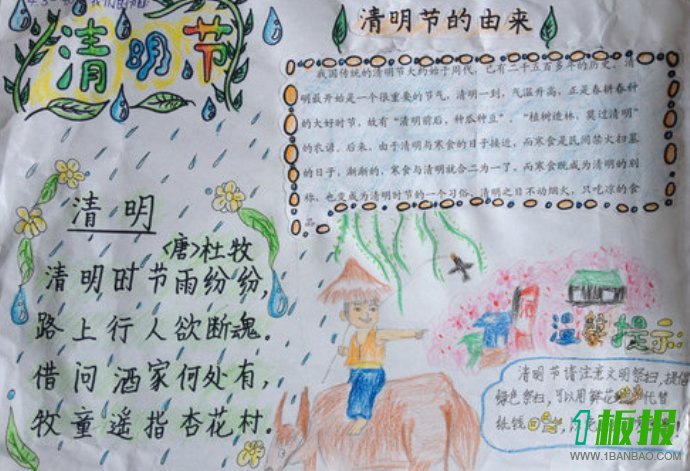 清明节
清明
〈唐〉杜牧
清明时节雨纷纷，
路上行人欲断魂。
借问酒家何处有，
牧童遥指杏花村。
清明节的由来
我国传统的清明节大约始于周代，已有二千五百多年的历史。清
明最开始是一个很重要的节气，清明一到，气温升高，正是春耕春种
的大好时节，故有“清明前后，种瓜种豆”。“植树造林，莫过清明”
的农谚。后来，由于清明与寒食的日子接近，而寒食是民间禁火扫墓
的日子，渐渐的，寒食与清明就合二为一了，而寒食既成为清明的别
称，也变成为清明时节的一个习俗，清明之日不动烟火，只吃凉的食
品。
温馨提示:
清明节请注意文明祭扫，提倡
绿色祭扫，可以用鲜花 代替
纸钱
1板报
WWW.1BANBAO.COM